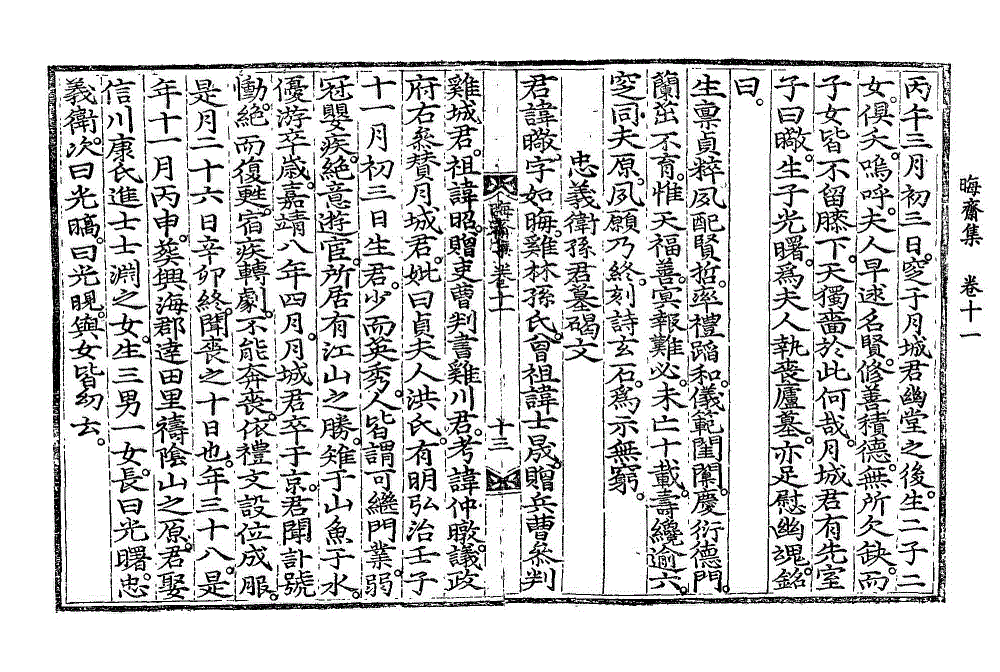 晦齋集　卷十一
丙午三月初三日。窆于月城君幽堂之後。生二子二
女。俱夭。嗚呼。夫人早逑名賢。修善積德。無所欠缺。而
子女皆不留膝下。天獨嗇於此何哉。月城君有先室
子曰暾。生子光曙。爲夫人執喪廬墓。亦足慰幽魂。銘
曰。
生禀貞粹。夙配賢哲。率禮蹈和。儀範閨闑。慶衍德門。
蘭茁不育。惟天福善。冥報難必。未亡十載。壽纔逾六。
窆同夫原。夙願乃終。刻詩玄石。爲示無窮。
忠義衛孫君墓碣文
君諱暾。字如晦。雞林孫氏。曾祖諱士晟。贈兵曹參判
晦齋集 卷十一
十三
雞城君。祖諱昭。贈吏曹判書雞川君。考諱仲暾。議政
府右參贊月城君。妣曰貞夫人洪氏。有明弘治壬子
十一月初三日生。君少而英秀。人皆謂可繼門業。弱
冠嬰疾。絶意遊官。所居有江山之勝。雉于山魚于水。
優游卒歲。嘉靖八年四月。月城君卒于京。君聞訃號
慟。絶而復甦。宿疾轉劇。不能奔喪。依禮文設位成服。
是月二十六日辛卯終。聞喪之十日也。年三十八。是
年十一月丙申。葬興海郡達田里禱陰山之原。君娶
信川康氏進士士淵之女。生三男一女。長曰光曙。忠
義衛。次曰光暠。曰光晛。與女皆幼云。